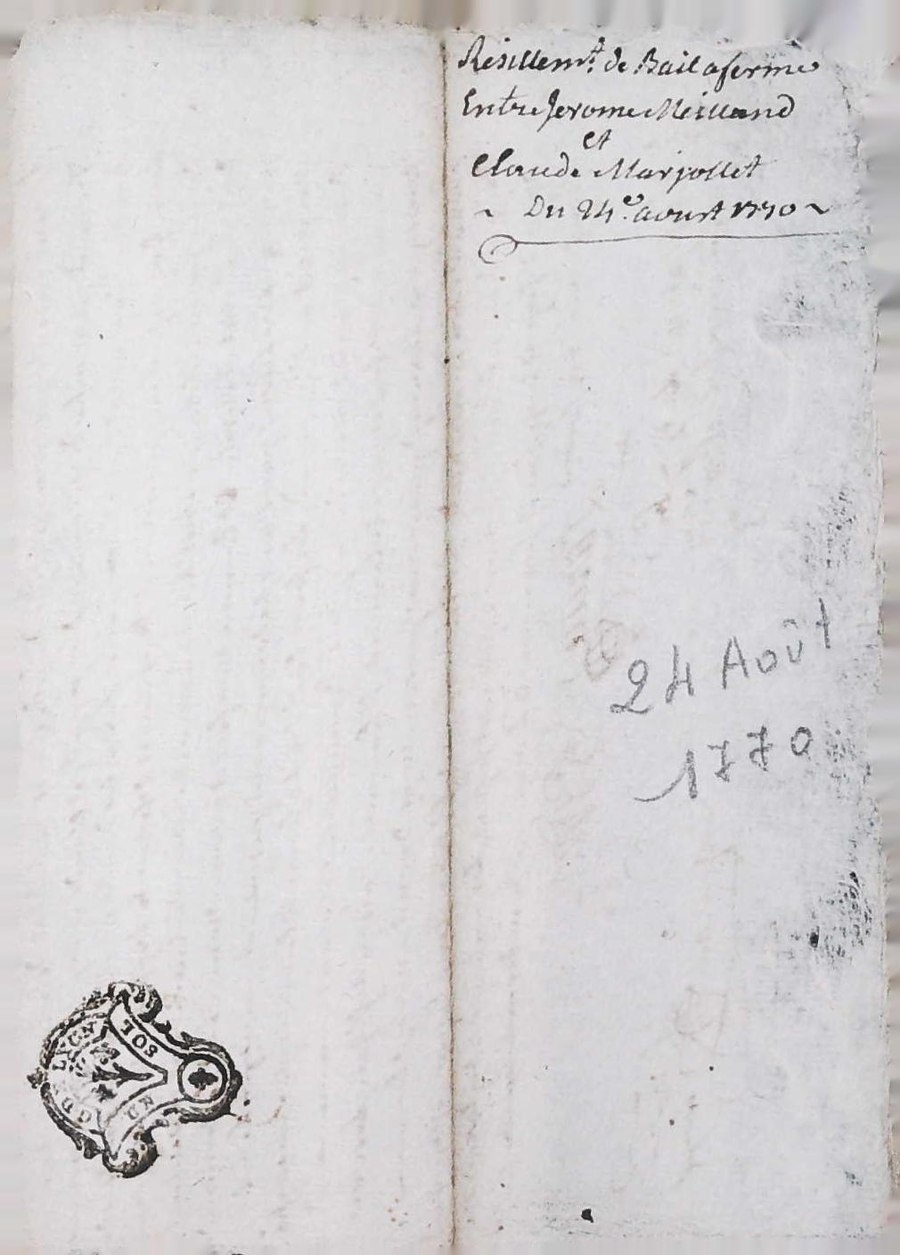 Résillemt. de Bail a ferme
Entre Jerome Meilland
et
Claude Marjollet
~ Du 24e. aoust 1770 ~
24 Août
1770
G. D. LYON
UN
SOL